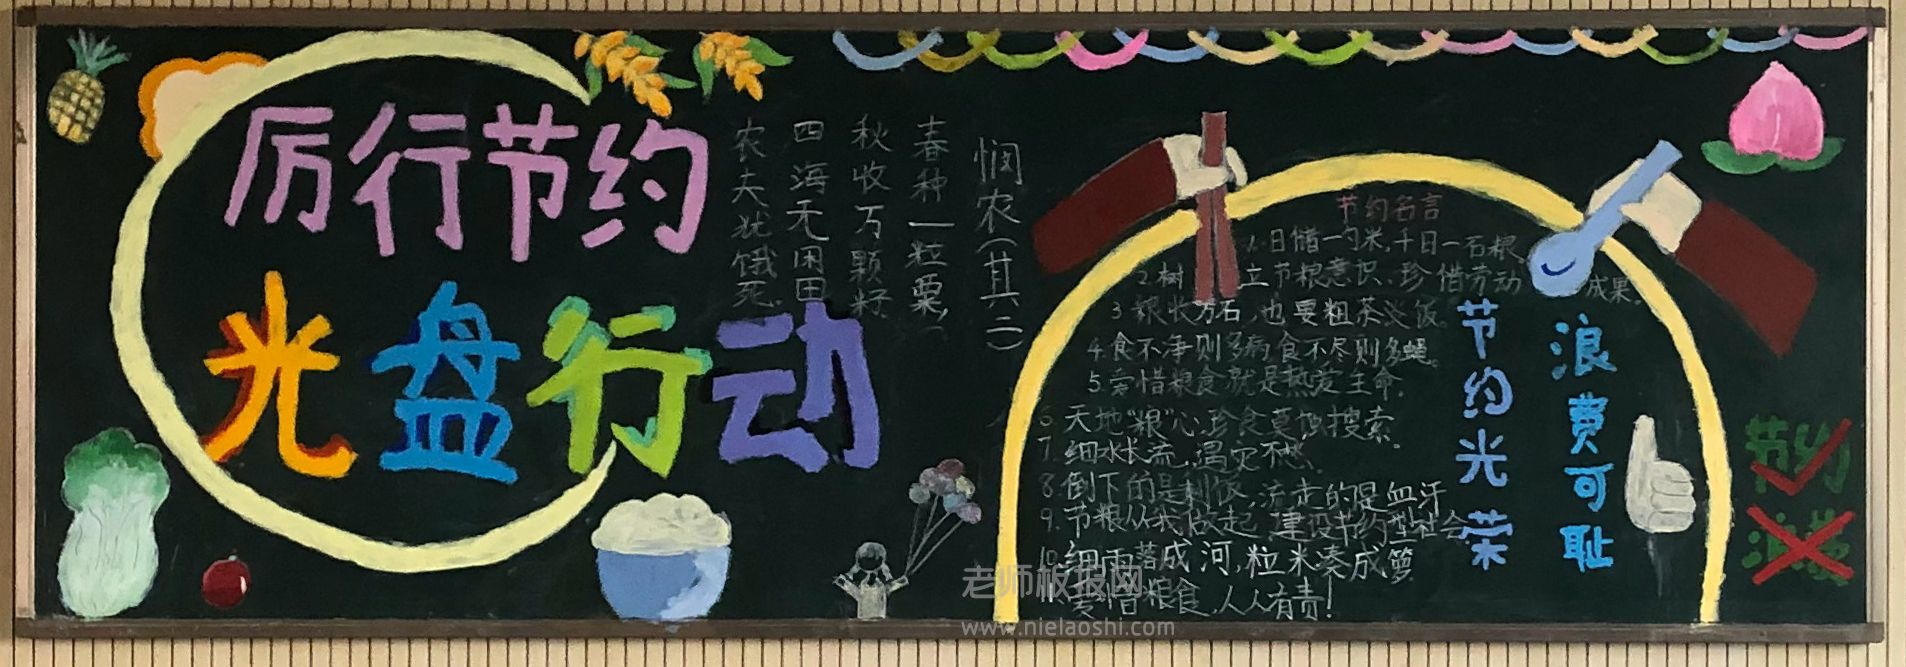 厉行节约
光盘行动
悯农(其二)
春种一粒粟,
秋收万颗籽
四海无闲田
农夫犹饿死.
节约名言
1.日储一勺米,千日一石粮
2.树立节粮意识、珍惜劳动成果.
3.粮收万石,也要粗茶淡饭.
4.食不净则多病食不尽则多蝇.
5.爱惜粮食就是热爱生命.
6.天地"粮"心,珍食莫
7.细水长流,遇灾不愁.
8.倒下的是剩饭,流走的是血汗
9.节粮从我做起,建设节约型社会
10.细雨落成河,粒米凑成箩
11.爱惜粮食,人人有责!
节约光荣
浪费可耻
节约
浪费
老师板报网
www.nielaoshi.com